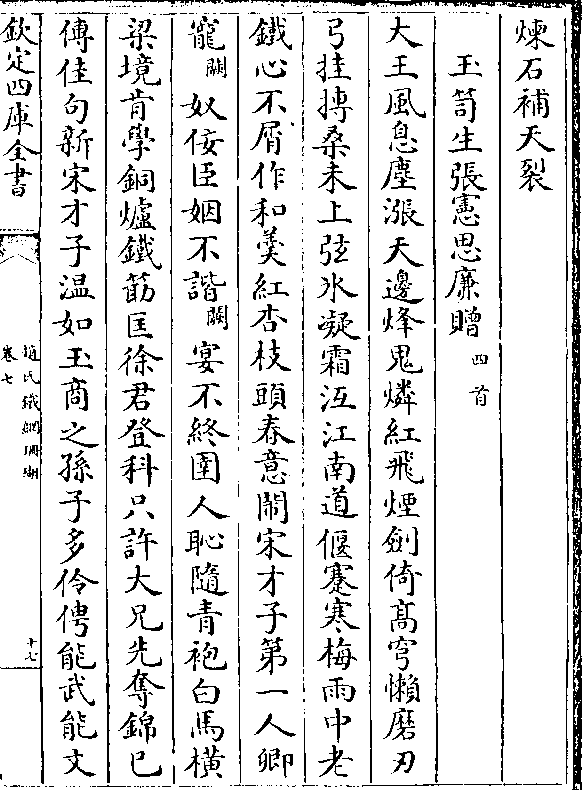 煉石補天裂
玉笥生張憲思廉贈四首
大王風息塵漲天邊烽鬼燐紅飛煙劍倚髙穹懶磨刃
弓挂摶桑未上弦氷凝霜沍江南道偃蹇寒梅雨中老
鐵心不屑作和羮紅杏枝頭春意鬧宋才子第一人卿
寵闕奴佞臣姻不諧闕宴不終圍人恥隨青袍白馬横
梁境肯學銅爐鐵筯匡徐君登科只許大兄先奪錦已
傳佳句新宋才子温如玉商之孫子多伶俜能武能文
欽定四庫全書
趙氏鐵網珊瑚
卷七
十七